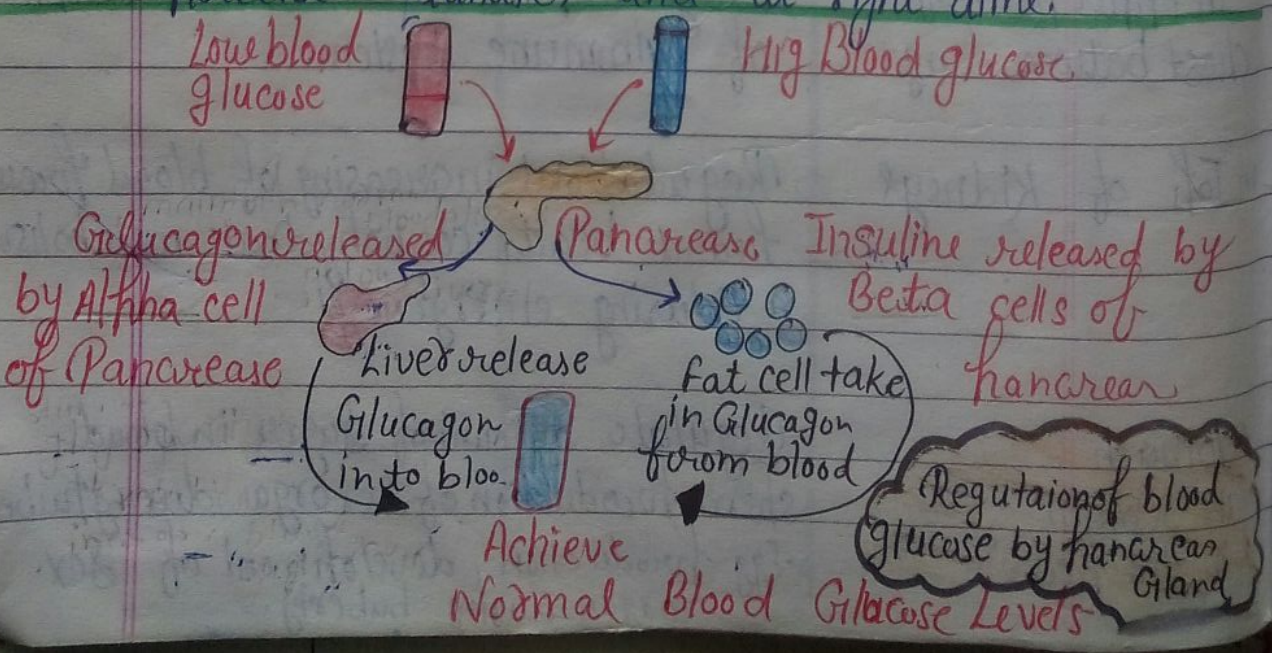 Low blood
glucose
Hig Blood glucose
Glucagon released
by Alpha cell
of Pancrease
Pancrease
Insuline released by
Beta cells of
pancreas
Liver release
Glucagon
in to bloo
fat cell take
in Glucagon
from blood
Achieve
Normal Blood Glucose Levels
Regutaion of blood
glucose by pancreas
Gland